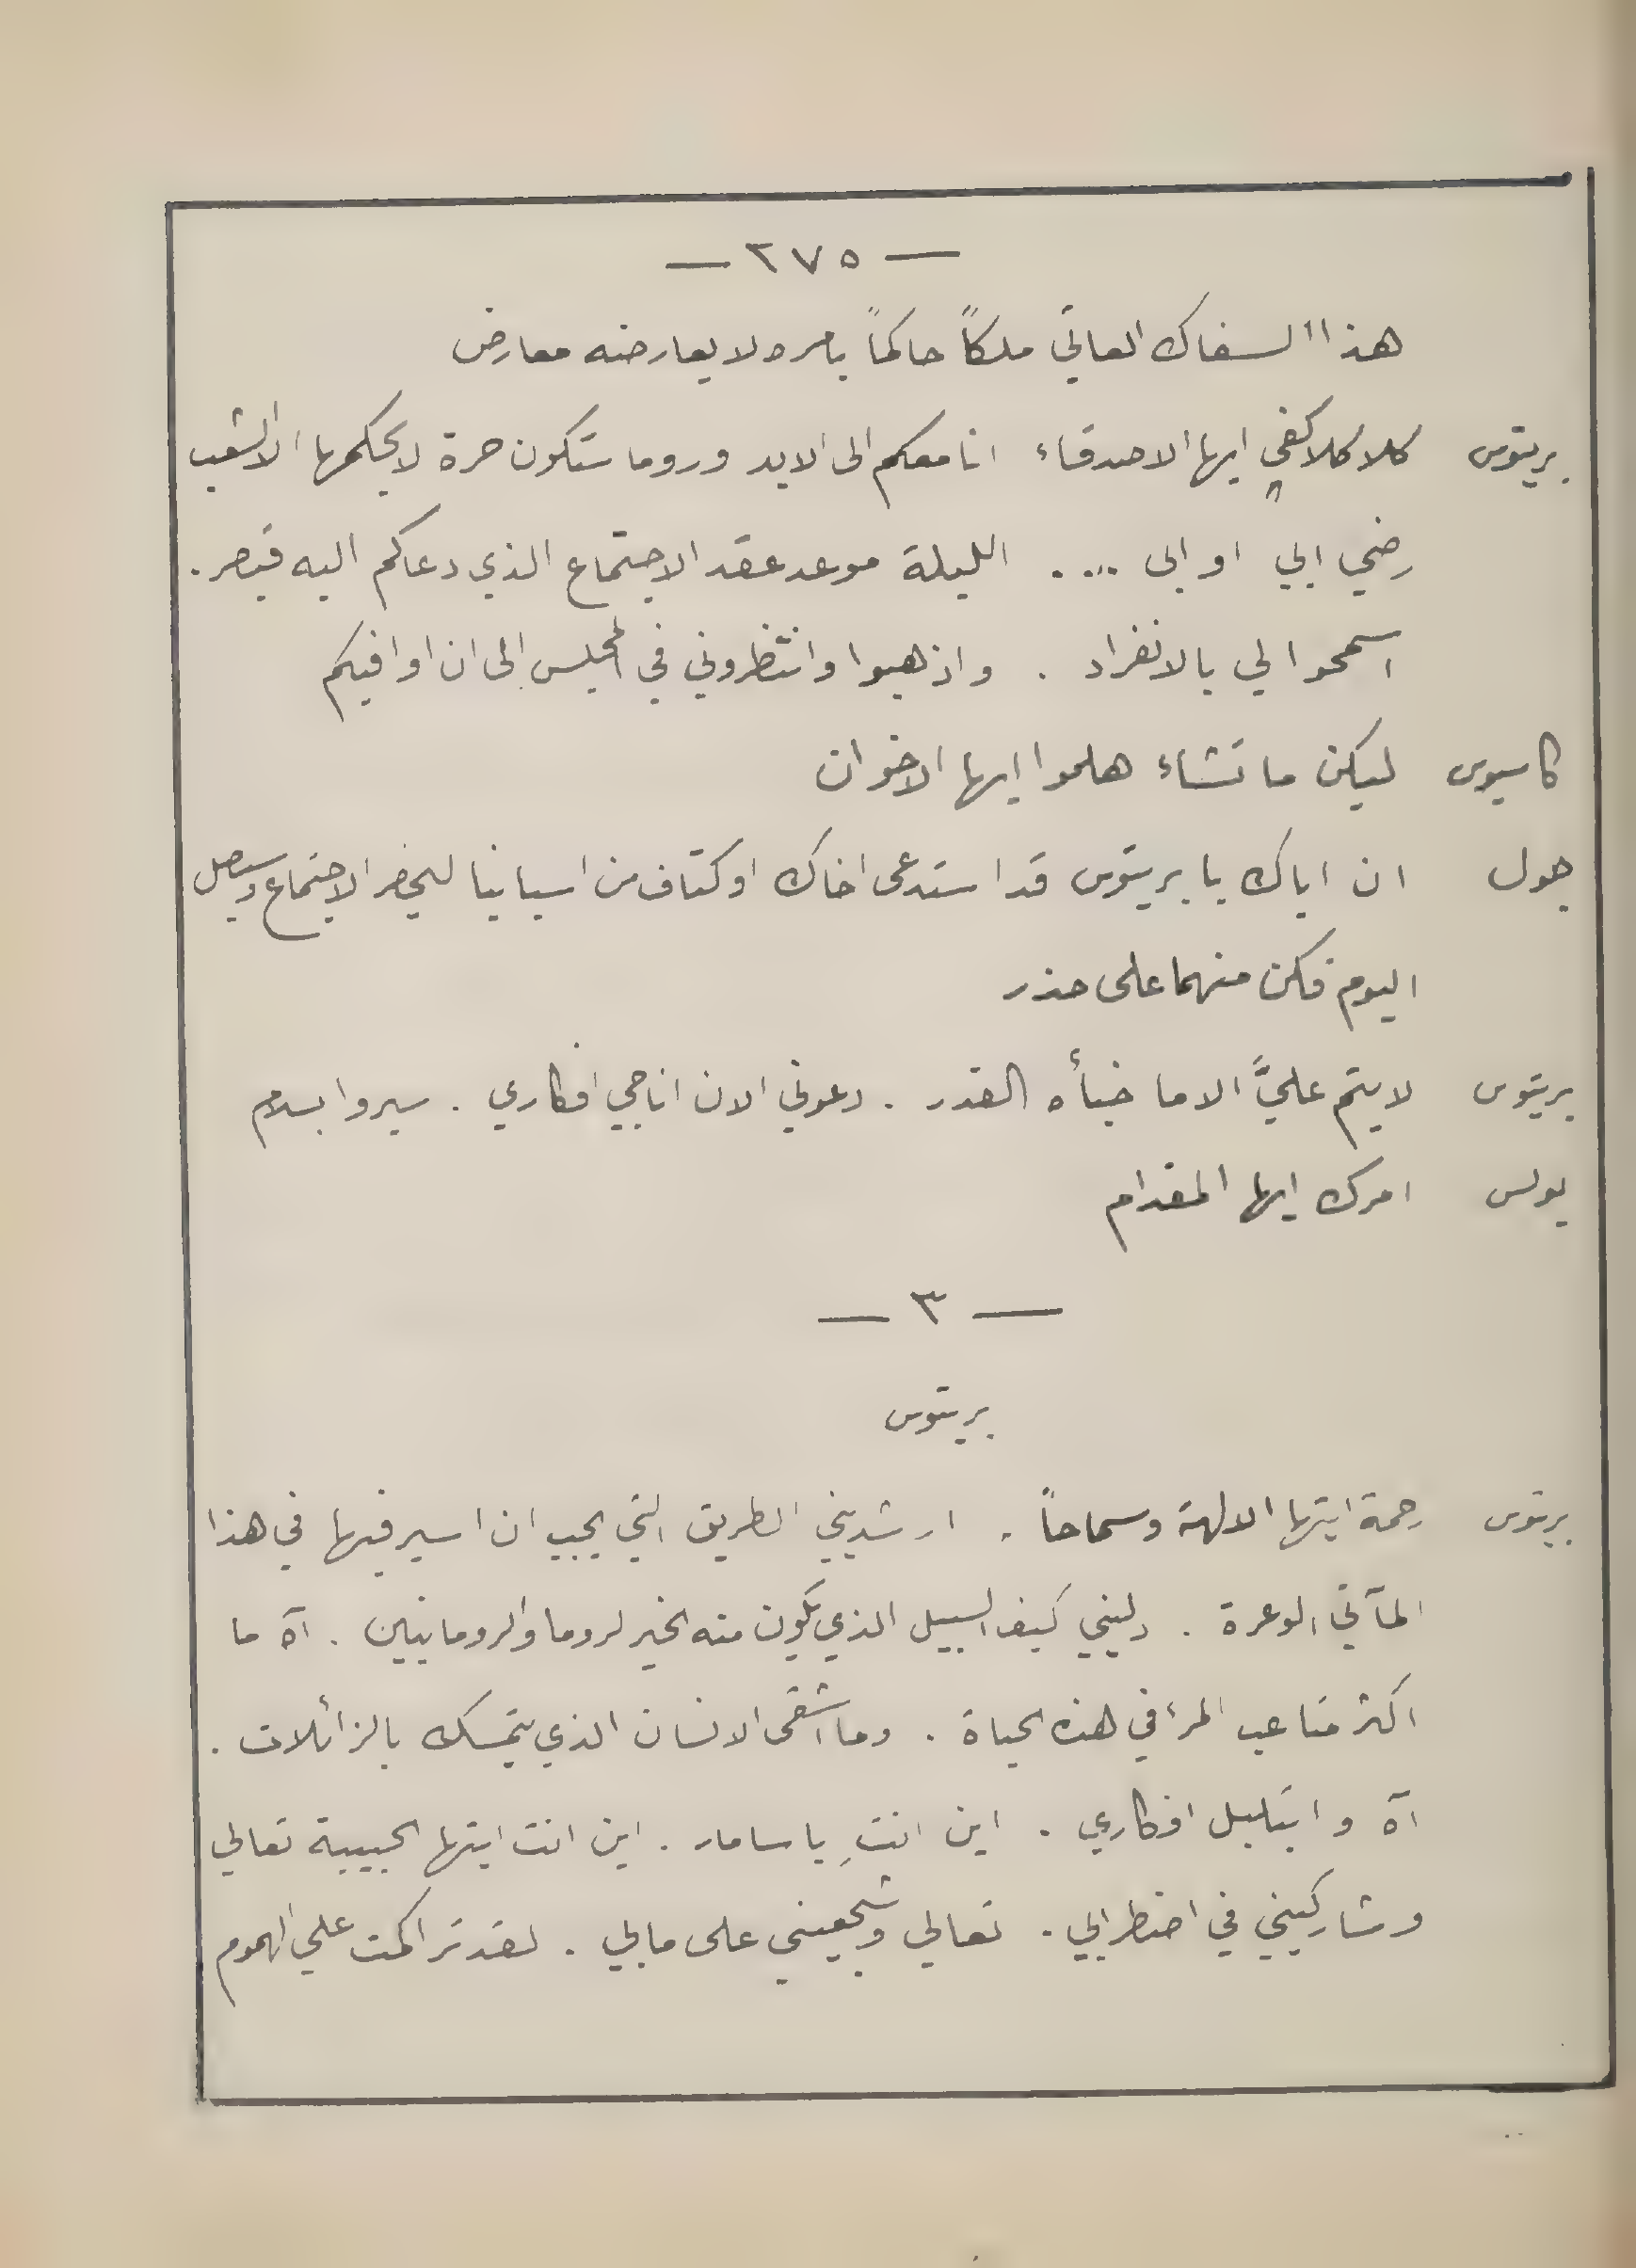 — ٢٧٥ —
هذا السفاك العاتي ملكاً حاكماً بامره لا يعارضه معارض
بريتوس كلا كلا كفى ايها الاصدقاء انا معكم الى الابد وروما ستكون حرة لا يحكمها الا الشعب
رضي ابي او ابى .... الليلة موعد عقد الاجتماع الذي دعاكم اليه قيصر .
اسمحوا لي بالانفراد . واذهبوا وانتظروني في المجلس الى ان اوافيكم
كاسيوس ليكن ما تشاء هلموا ايها الاخوان
جول ان اباك يا بريتوس قد استدعى اخاك اوكتاف من اسبانيا ليحضر الاجتماع وسيصل
اليوم فكن منهما على حذر
بريتوس لا يتم عليَّ الا ما خبأه القدر . دعوني الان اناجي افكاري . سيروا بسلام
بولس امرك ايها المقدام
— ٣ —
بريتوس
بريتوس رحمة ايتها الالهة وسماحاً . ارشديني الطريق التي يجب ان اسير فيها في هذا
المآتي الوعرة . دليني كيف السبيل الذي يكون منه الخير لروما والرومانيين . آه ما
اكثر متاعب المرء في هذه الحياة . وما اشقى الانسان الذي يتمسك بالزائلات .
آه وا بتلبل افكاري . اين انتِ يا سامار . اين انت ايتها الحبيبة تعالي
وشاركيني في اضطرابي . تعالي وشجعيني على ما بي . لقد تراكمت علي الهموم